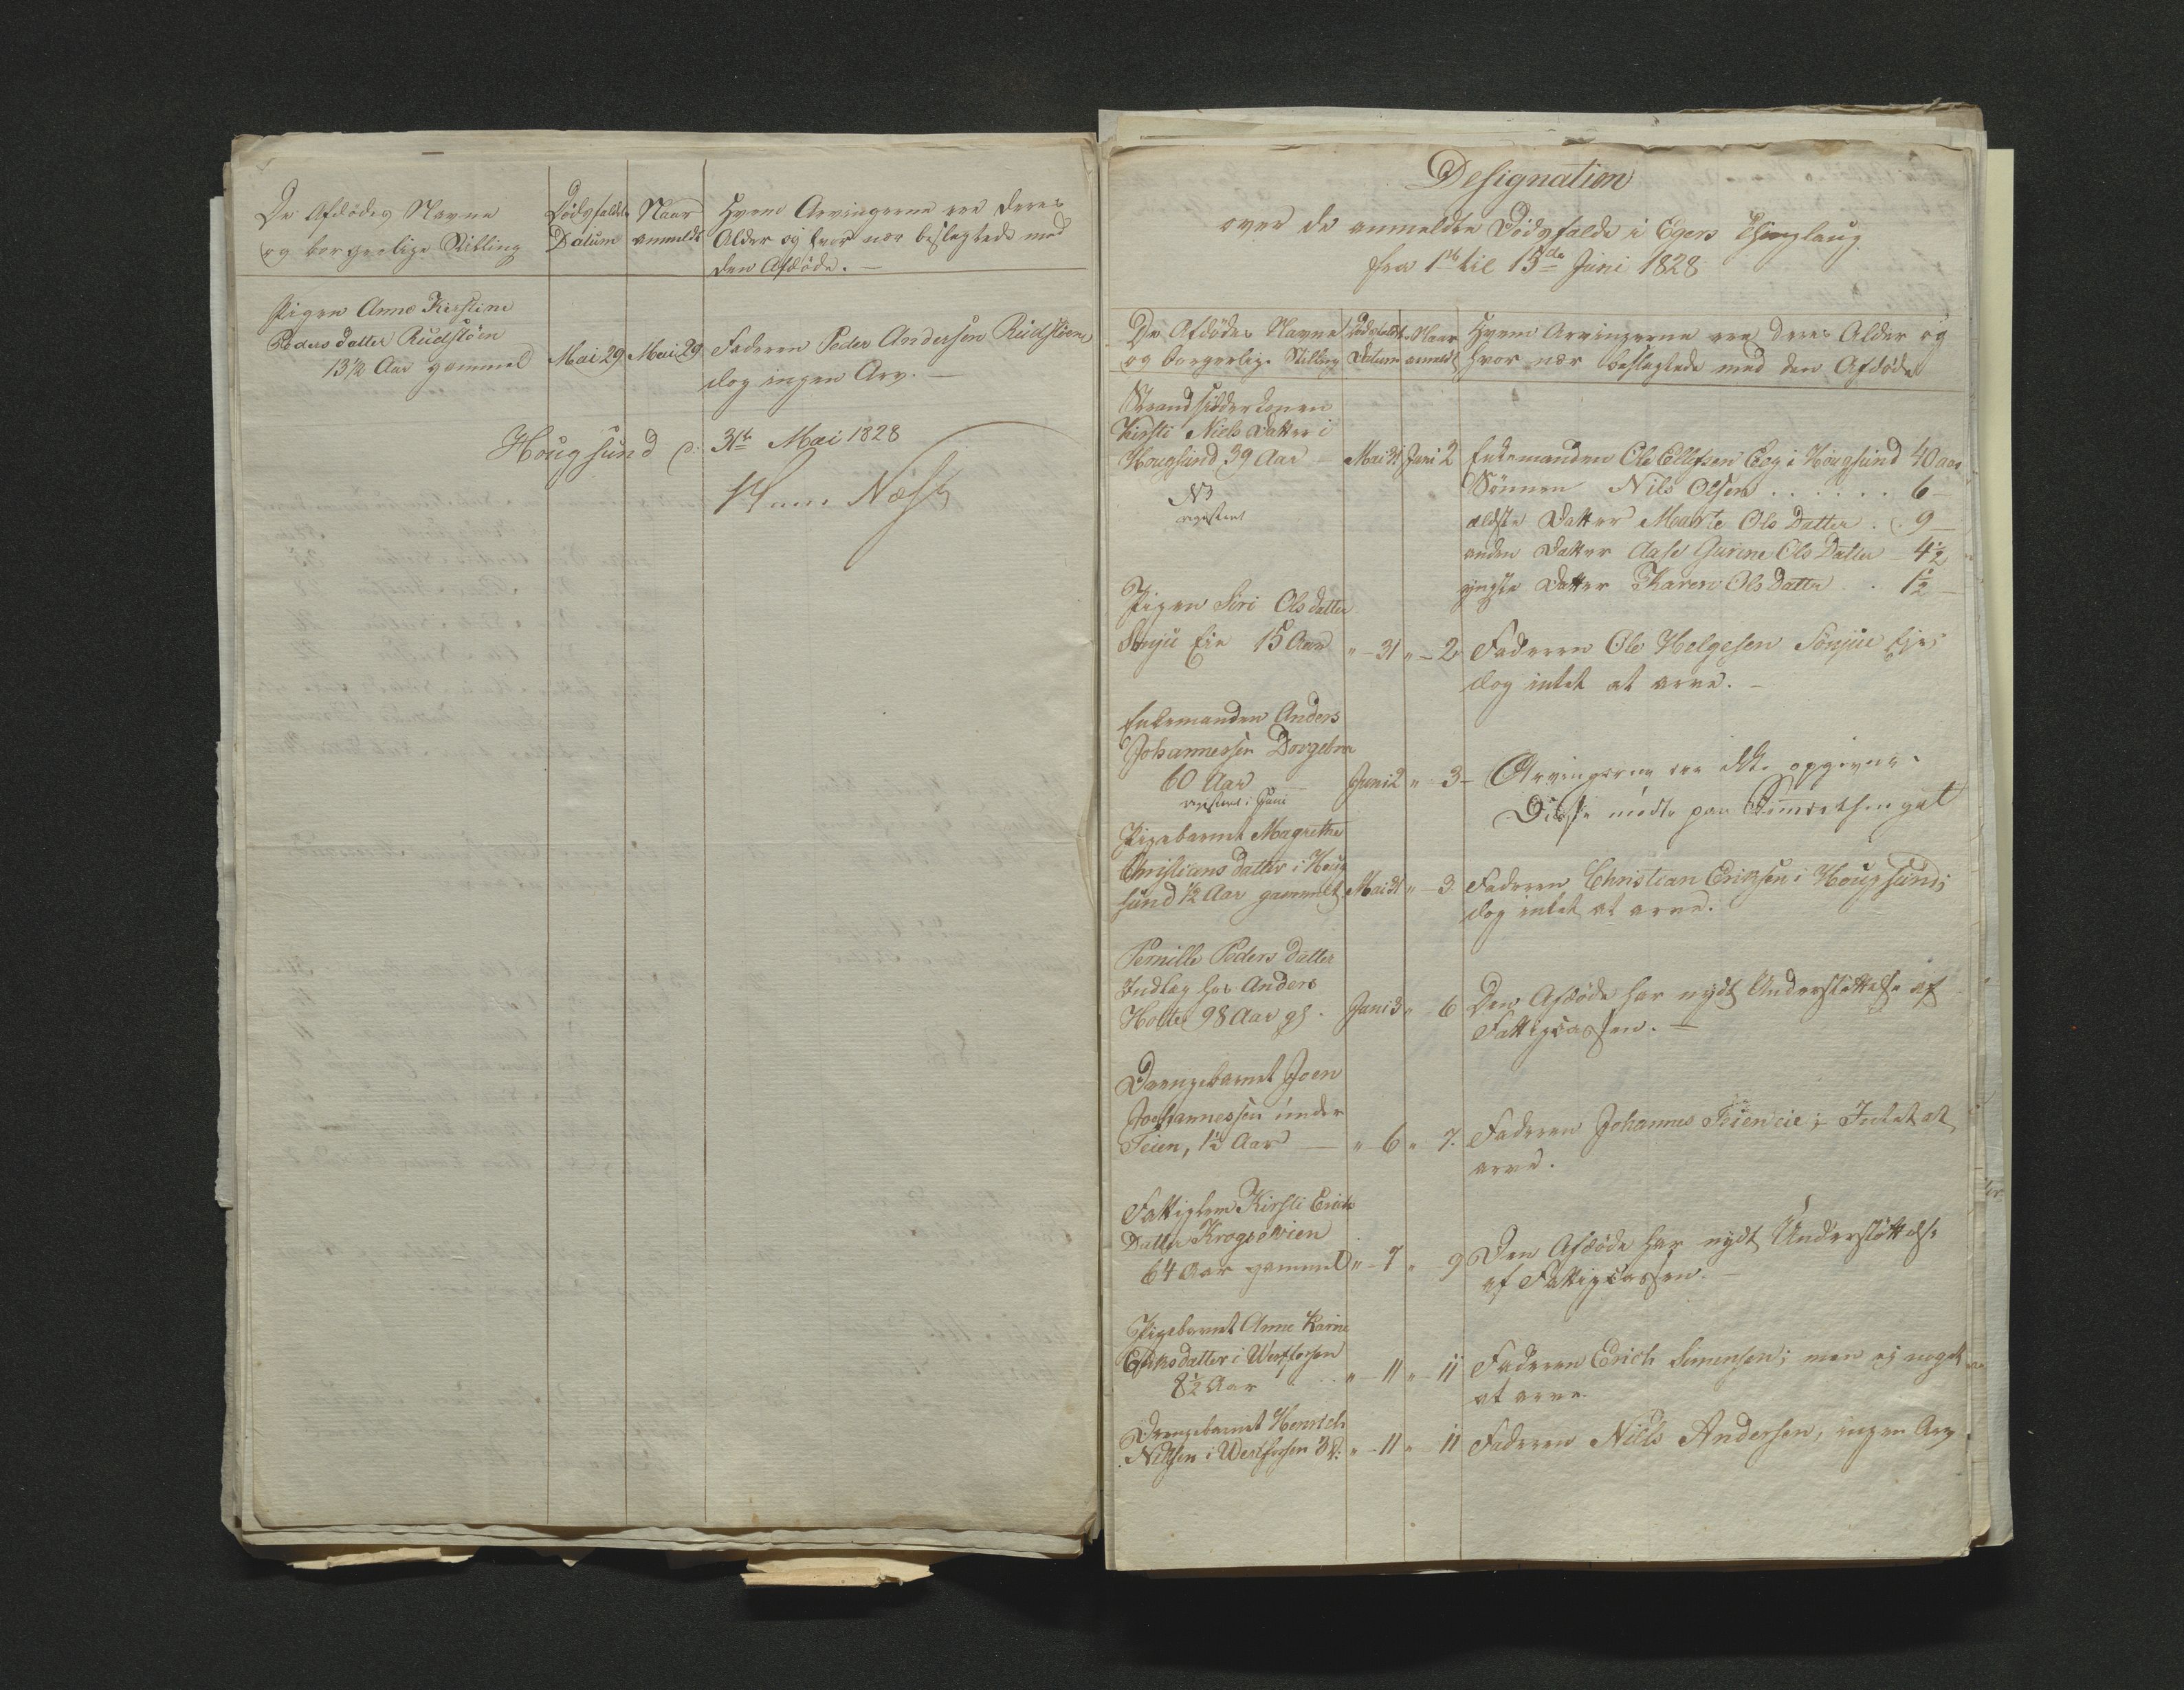 De Afdødes Navne
og borgerlige Stilling
Dødsfaldets
Datum
Naar
anmeldt
Hvem Arvingerne ere deres
Alder og hvor nær beslegtede med
den Afdøde. —
Pigen Anne Kirstine
Peders datter Rudstøen
13½ Aar gammel
Mai 29
Mai 29
Faderen Peder Andersen Rudstøen,
dog ingen Arv. —
Hougsund d: 31te Mai 1828
Næss
Designation
over de anmeldte Dødsfalde i Egers Thinglaug
fra 1ste til 15de Juni 1828
De Afdødes Navne
og borgerlige Stilling
Dødsfaldets
Datum
Naar
anmeldt
Hvem Arvingerne ere, deres Alder og
hvor nær beslegtede med den Afdøde
Strandsidderkonen
Kirsti Niels Datter i
Hougsund 39 Aar
NB
registeret
Mai 31
Juni 2
Enkemanden Ole Ellefsen Eeg i Hougsund 40 aar
Sønnen Nils Olsen . . . . . . 6 —
eldste Datter Marte Ols Datter . . 9 —
anden Datter Aase Gurine Ols Datter — 4½
yngste Datter Karen Ols Datter . 1½ —
Pigen Siri Ols datter
Sønju Eie 15 Aar
" — 31
" — 2
Faderen Ole Helgesen Sønjue Eje;
dog intet at arve. —
Enkemanden Anders
Johannessen
60 Aar
registeret i Juni
Juni 2
" 3 —
Arvingerne ere ikke opgivne.
Disse mødte paa
Pigebarnet Magrethe
Christians datter i Houg
sund ½ Aar gammelt
Mai 31
" — 3
Faderen Christian Eriksen i Hougsund;
dog intet at arve.
Pernille Peders datter
Indlag hos Anders
Holtes 98 Aar gl.
Juni 3
" 6
Den Afdøde har nydt Understøttelse af
Fattigcassen. —
Drengebarnet Joen
Johannessen under
Teien, 1½ Aar —
" — 6
" 7.
Faderen Johannes Teieneie; Intet at
arve.
Fattiglem Kirsti Erichs
Datter
64 Aar gammel
" — 7
" 9
Den Afdøde har nydt Understøttelse
af Fattigcassen. —
Pigebarnet Anne Karine
Eriks datter i Westfosen
8½ Aar
" — 11
" 11
Faderen Erich Simensen; men ej noget
at arve.
Drengebarnet Henrich
Nilsen i Westfosen
" — 11
" 11
Faderen Niels Andersen, ingen Arv.